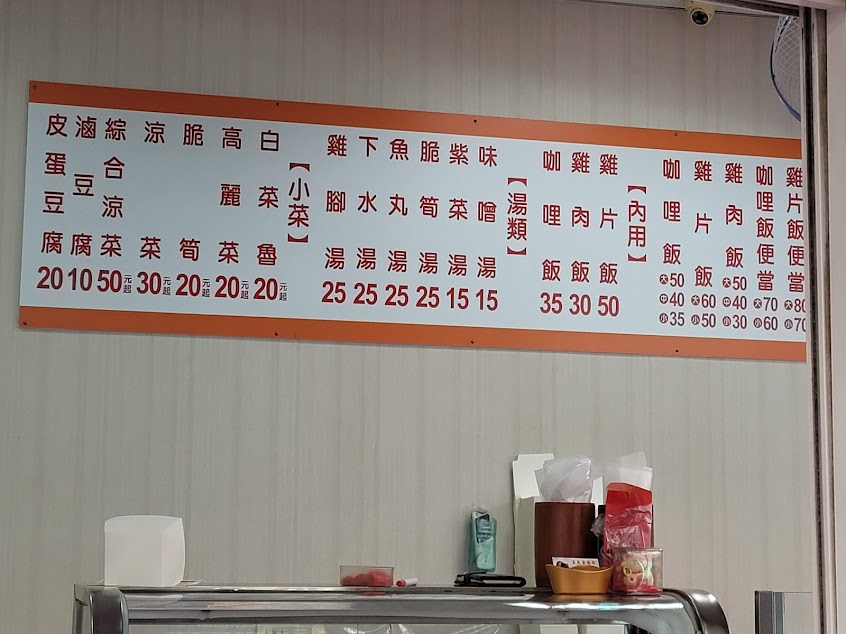 雞片飯便當 大80 小70
咖哩飯便當 大70 小60
雞肉飯 大50 中40 小30
雞片飯 大60 小50
咖哩飯 大50 中40 小35
【內用】
雞片飯 50
雞肉飯 30
咖哩飯 35
【湯類】
味噌湯 15
紫菜湯 15
脆筍湯 25
魚丸湯 25
下水湯 25
雞腳湯 25
【小菜】
白菜魯 20元起
高麗菜 20元起
脆筍 20元起
涼菜 30元起
綜合涼菜 50元起
滷豆腐 10
皮蛋豆腐 20